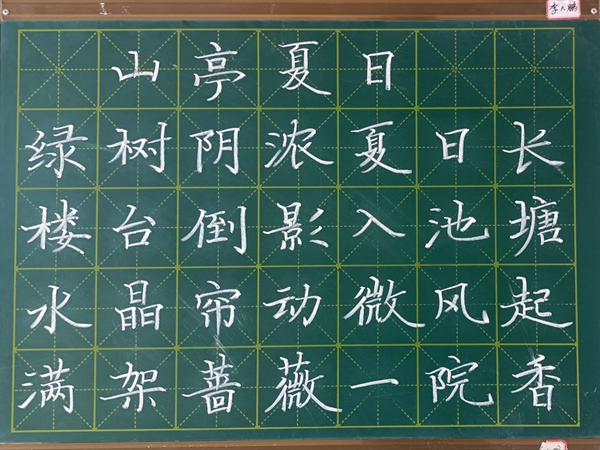 李大鹏
山亭夏日
绿树阴浓夏日长
楼台倒影入池塘
水晶帘动微风起
满架蔷薇一院香